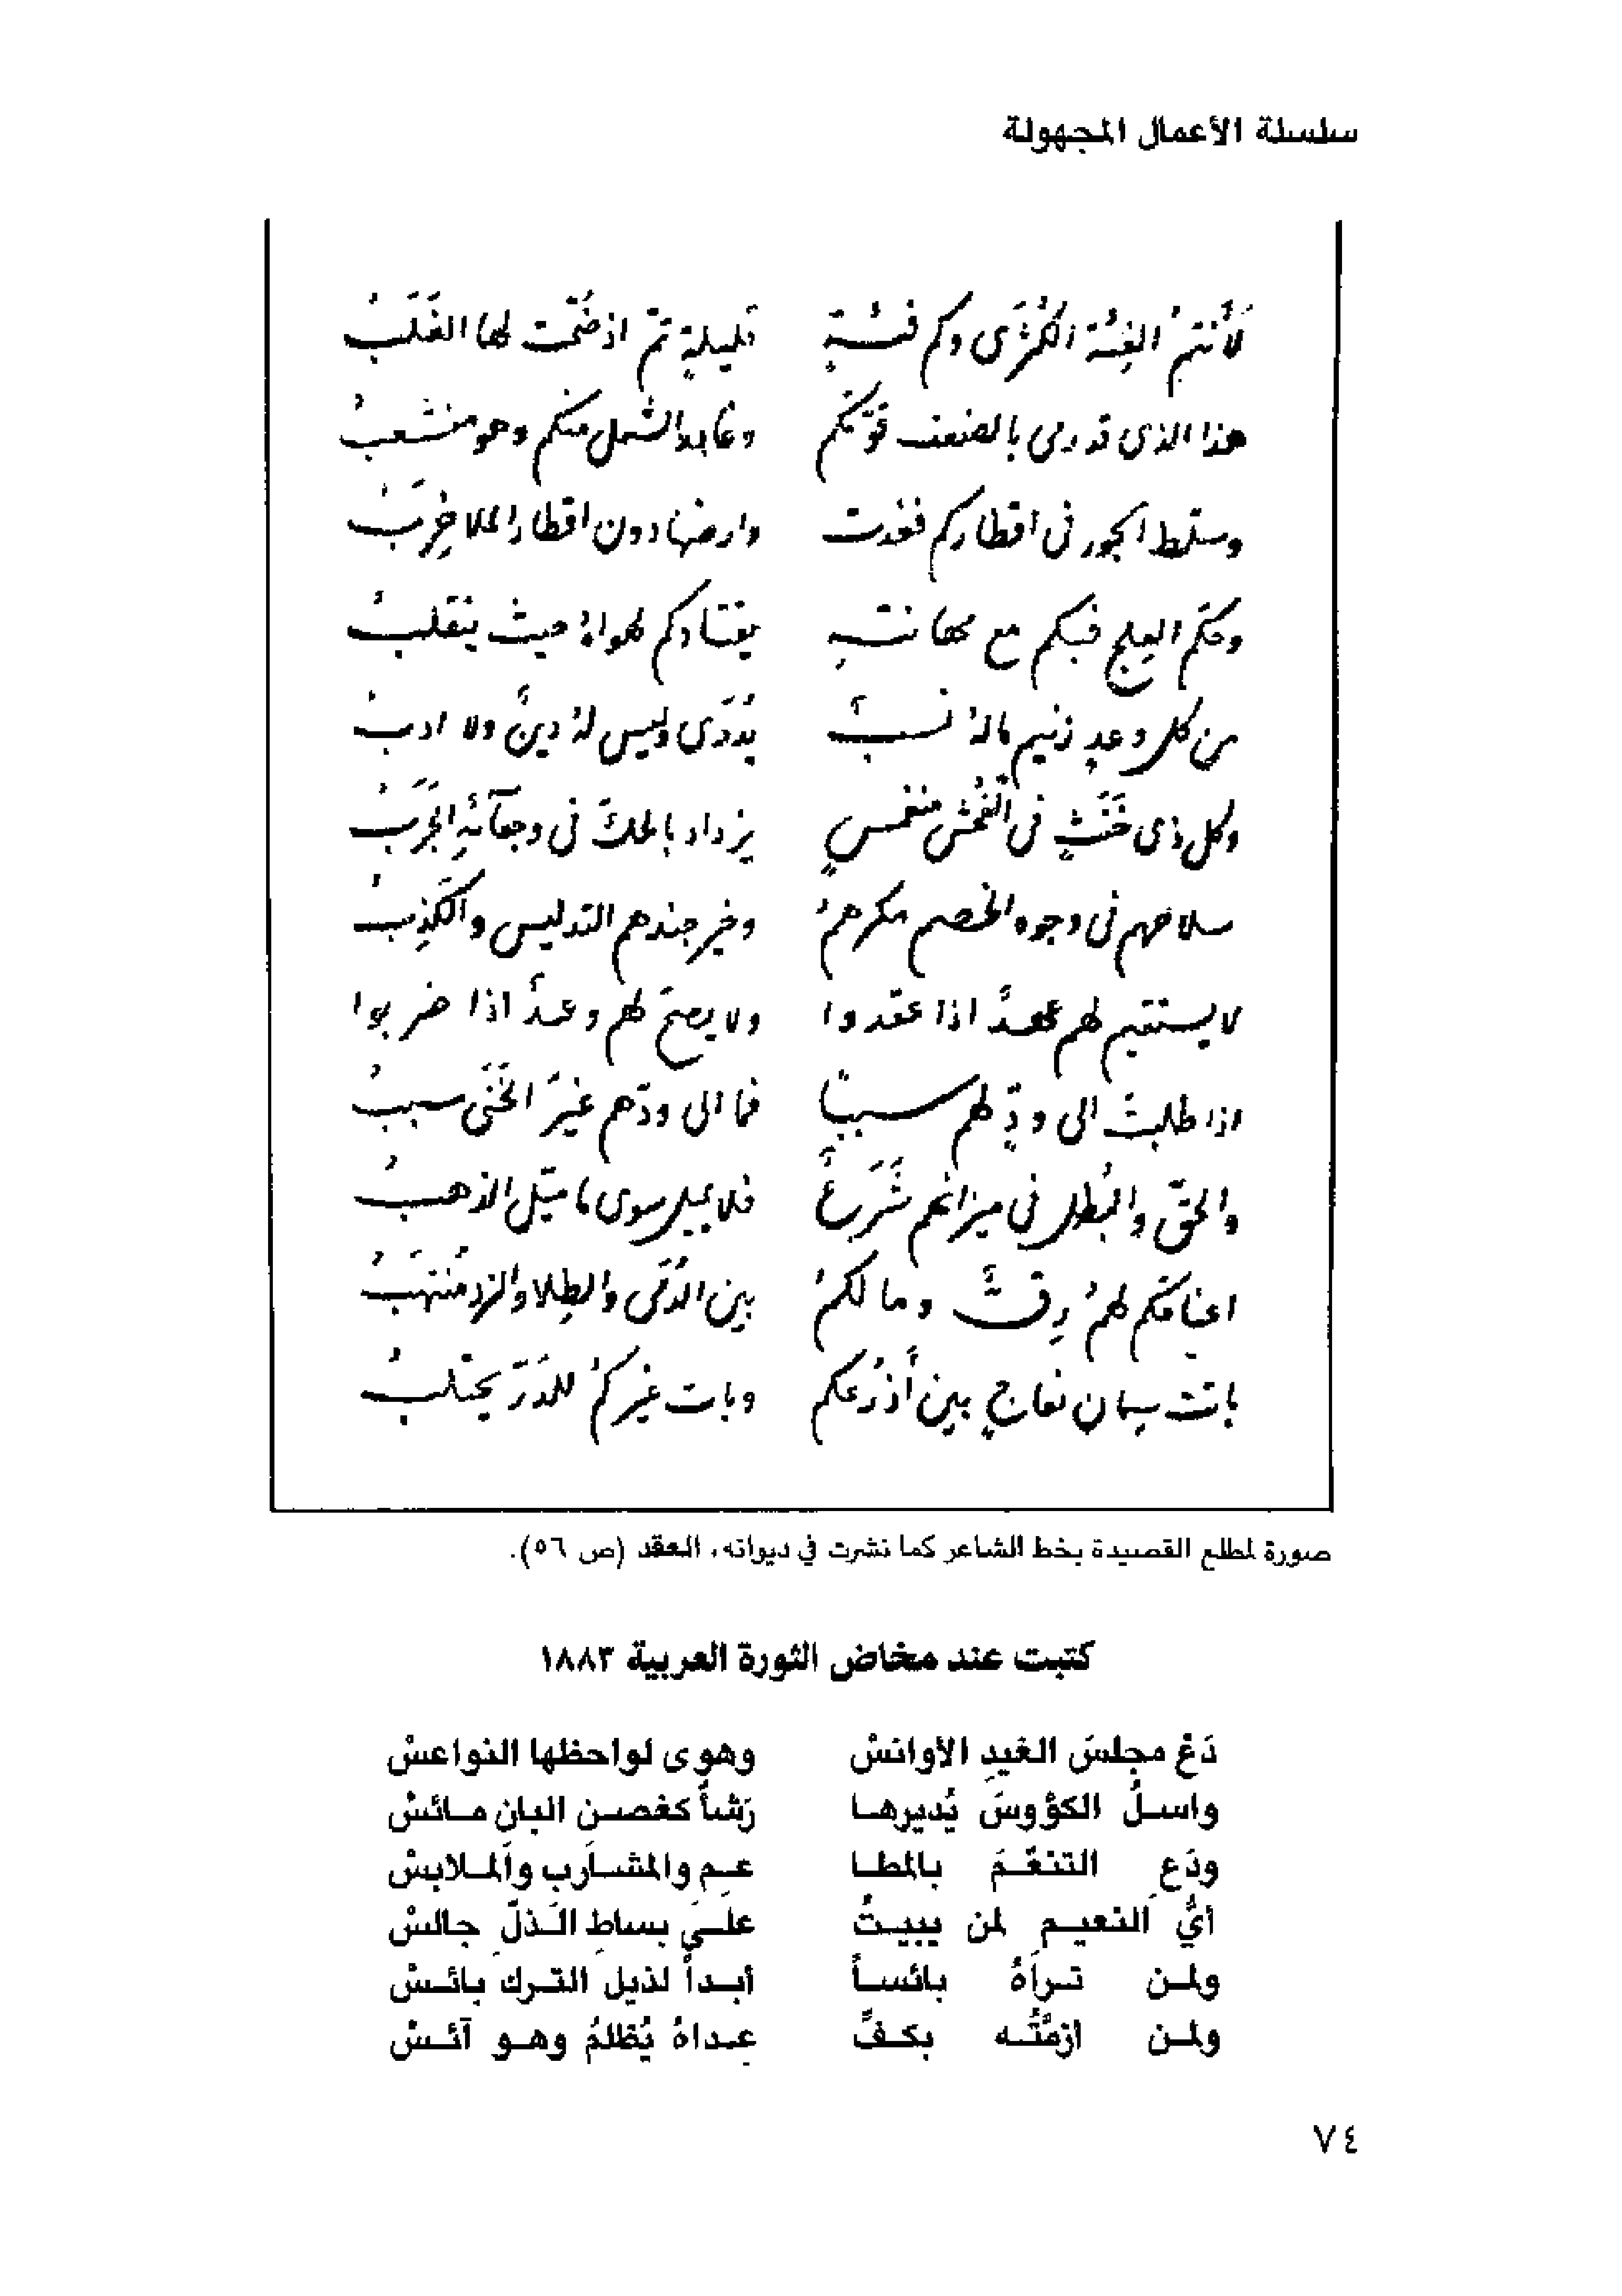 سلسلة الأعمال المجهولة
لَأَنتمُ الفِئَة الكُثْرَى وكم فئةٍ قليلةٍ تمّ اذ ضُمّت لها الغَلَبُ
هذا الذى قد رمى بالضعف قوّتكم وغادر الشمل منكم وهو منشعبُ
وسلّط الجور فى اقطاركم فغدت وارضها دون اقطار الملا خِرَبُ
وحكّم العِلج فيكم مع مهانتهِ يقتادكم لهواهُ حيث ينقلبُ
من كل وغدٍ زنيم مالهُ نسبٌ يُدرَى وليس لهُ دينٌ ولا ادبُ
وكل ذى خَنَثٍ فى الفُحش منغمسٍ يزداد بالحكّ فى وجعآئهِ الجَرَبُ
سلاحهم فى وجوه الخصم مكرهمُ وخير جندهم التدليس والكَذِبُ
لا يستقيم لهم عهدٌ اذا عقدوا ولا يصحّ لهم وعدٌ اذا ضربوا
اذا طلبتَ الى ودٍّ لهم سببًا فما الى ودّهم غيرَ الخَنَى سببُ
والحقّ والبُطل فى ميزانهم شَرَعٌ فلا يميل سوى ما ميّل الذهبُ
اعناقكم لهمُ رِقٌّ ومالكمُ بين الدُمَى والطِلا والنرد مُنتهَبُ
باتت سمان نعاجٍ بين أذرُعكم وبات غيركمُ للدَرّ يحتلبُ
صورة لمطلع القصيدة بخط الشاعر كما نشرت في ديوانه، العقد (ص ٥٦).
كتبت عند مخاض الثورة العربية ١٨٨٣
دَعْ مجلسَ الغيدِ الأوانسْ وهوى لواحظها النواعسْ
واسلُ الكؤوسَ يُديرها رَشأٌ كغصن البان مائسْ
ودَعِ التنعّمَ بالمطا عمِ والمشاربِ والملابسْ
أيُّ النعيم لمن يبيتُ على بساطِ الذلّ جالسْ
ولمن تراهُ بائساً أبداً لذيل الترك بائسْ
ولمن ازمَّتُه بكفِّ عِداهُ يُظلمُ وهو آئسْ
٧٤